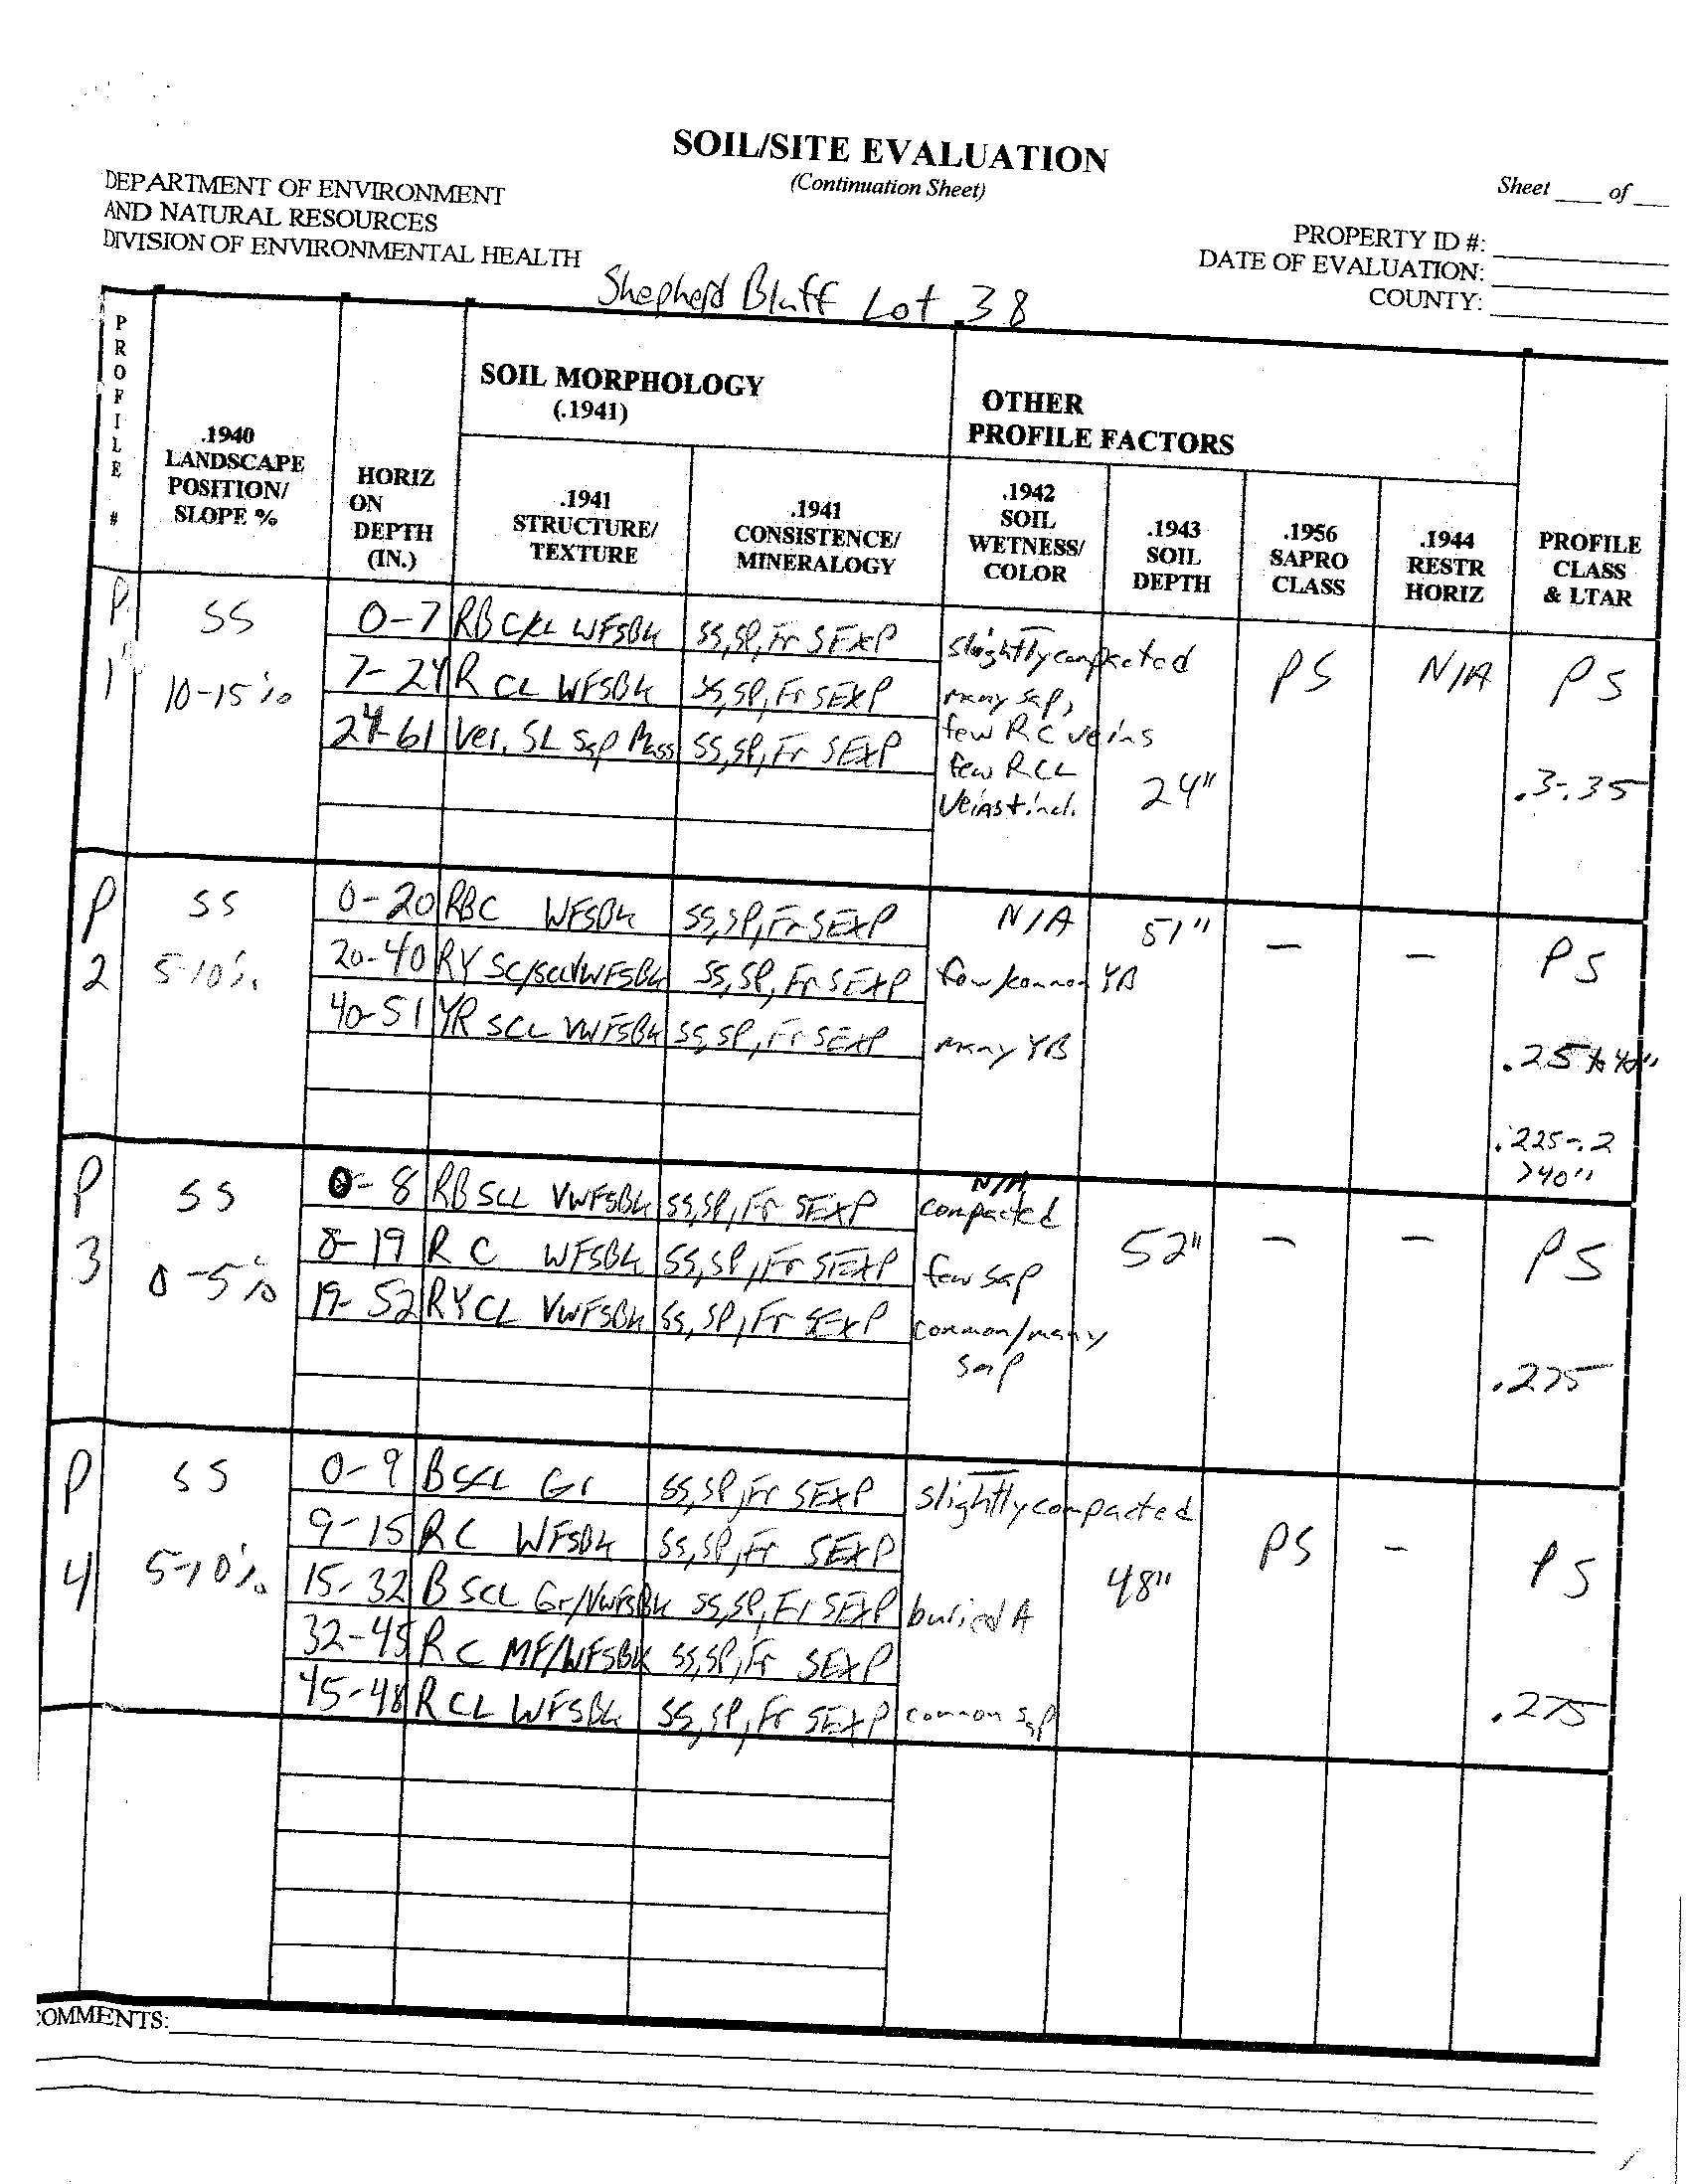 SOIL/SITE EVALUATION
(Continuation Sheet)
Sheet ____ of ___
DEPARTMENT OF ENVIRONMENT
AND NATURAL RESOURCES
DIVISION OF ENVIRONMENTAL HEALTH
PROPERTY ID #:
DATE OF EVALUATION:
COUNTY:
Shepherd Bluff Lot 38
PROFILE #
.1940
LANDSCAPE
POSITION/
SLOPE %
HORIZ
ON
DEPTH
(IN.)
SOIL MORPHOLOGY
(.1941)
.1941
STRUCTURE/
TEXTURE
.1941
CONSISTENCE/
MINERALOGY
OTHER
PROFILE FACTORS
.1942
SOIL
WETNESS/
COLOR
.1943
SOIL
DEPTH
.1956
SAPRO
CLASS
.1944
RESTR
HORIZ
PROFILE
CLASS
& LTAR
P 1 SS 10-15%
0-7 RB C/CL WFSBK SS, SP, Fr SEXP slightly compacted
7-24 R CL WFSBK SS, SP, Fr SEXP many sap,
24-61 Ver. SL Sap Mass SS, SP, Fr SEXP few RC veins
few RCL
veins + incl.
24" PS N/A PS
.3-.35
P 2 SS 5-10%
0-20 RBC WFSBK SS, SP, Fr SEXP N/A
20-40 RY SC/SCL VWFSBK SS, SP, Fr SEXP few/common YB
40-51 YR SCL VWFSBK SS, SP, Fr SEXP many YB
51" - - PS
.25 to 40"
.225-.2
>40"
P 3 SS 0-5%
0-8 RB SCL VWFSBK SS, SP, Fr SEXP N/A compacted
8-19 R C WFSBK SS, SP, Fr SEXP few sap
19-52 RY CL VWFSBK SS, SP, Fr SEXP common/many
sap
52" - - PS
.275
P 4 SS 5-10%
0-9 B SCL Gr SS, SP, Fr SEXP slightly compacted
9-15 R C WFSBK SS, SP, Fr SEXP
15-32 B SCL Gr/VWFSBK SS, SP, Fr SEXP buried A
32-45 R C MF/WFSBK SS, SP, Fr SEXP
45-48 R CL WFSBK SS, SP, Fr SEXP common sap
48" PS - PS
.275
COMMENTS: